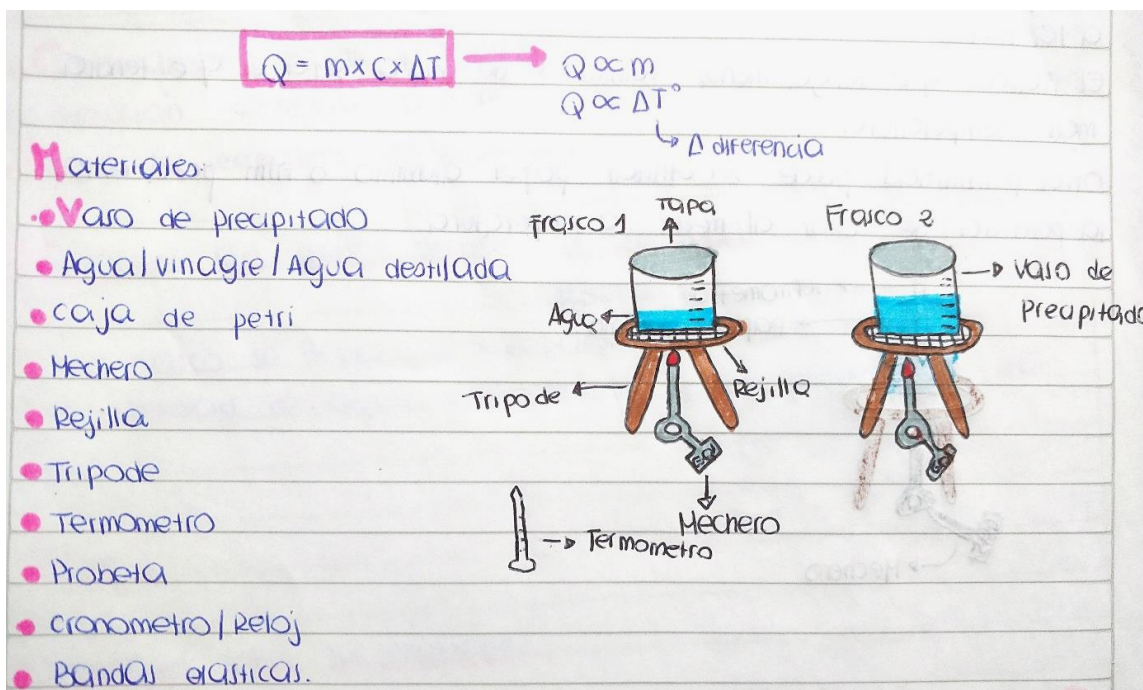 Q = m x C x ΔT
Q ∝ m
Q ∝ ΔT°
Δ diferencia
Materiales:
Vaso de precipitado
Agua/vinagre/Agua destilada
caja de petri
Mechero
Rejilla
Tripode
Termometro
Probeta
cronometro/Reloj
Bandas elasticas.
Frasco 1
Tapa
Agua
Tripode
Rejilla
Mechero
Termometro
Frasco 2
Vaso de
Precipitado